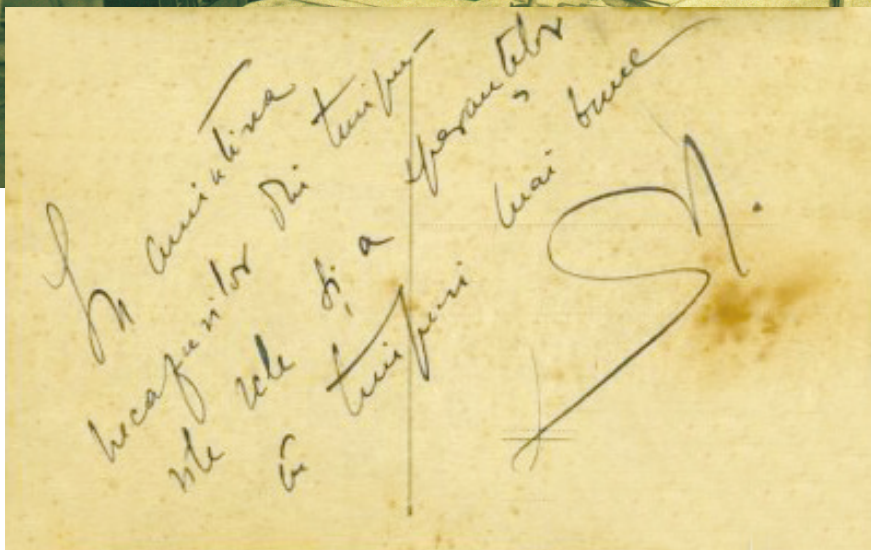 În amintirea
necazurilor din timpu-
rile rele și a speranțelor
în timpuri mai bune